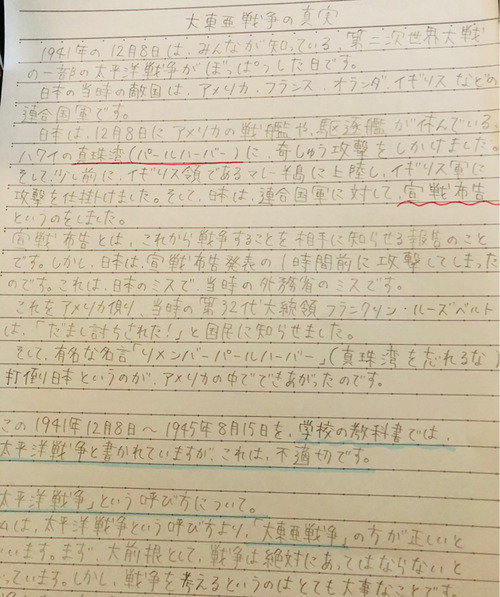 大東亜戦争の真実
1941年の12月8日は、みんなが知っている、第二次世界大戦
の一部の太平洋戦争がぼっぱつした日です。
日本の当時の敵国は、アメリカ、フランス、オランダ、イギリスなどの
連合国軍です。
日本は、12月8日にアメリカの戦艦や、駆逐艦が休んでいる、
ハワイの真珠湾(パールハーバー)に、奇しゅう攻撃をしかけました。
そして、少し前に、イギリス領であるマレー半島に上陸し、イギリス軍に
攻撃を仕掛けました。そして、日本は、連合国軍に対して、宣戦布告
というのをしました。
宣戦布告とは、これから戦争することを相手に知らせる報告のこと
です。しかし、日本は、宣戦布告発表の1時間前に攻撃してしまった
のです。これは、日本のミスで、当時の外務省のミスです。
これをアメリカ側り、当時の第32代大統領フランクリン・ルーズベルト
は、「だまし討ちされた!」と国民に知らせました。
そして、有名な名言「リメンバーパールハーバー」(真珠湾を忘れるな)
打倒り日本というのが、アメリカの中でできあがったのです。
この1941年12月8日〜1945年8月15日を、学校の教科書では、
太平洋戦争と書かれていますが、これは、不適切です。
太平洋戦争」という呼び方について。
は、太平洋戦争という呼び方より、「大東亜戦争」の方が正しいと
います。まず、大前根として、戦争は絶対にあってはならないと
っています。しかし、戦争を考えるというのはとても大事なことです。